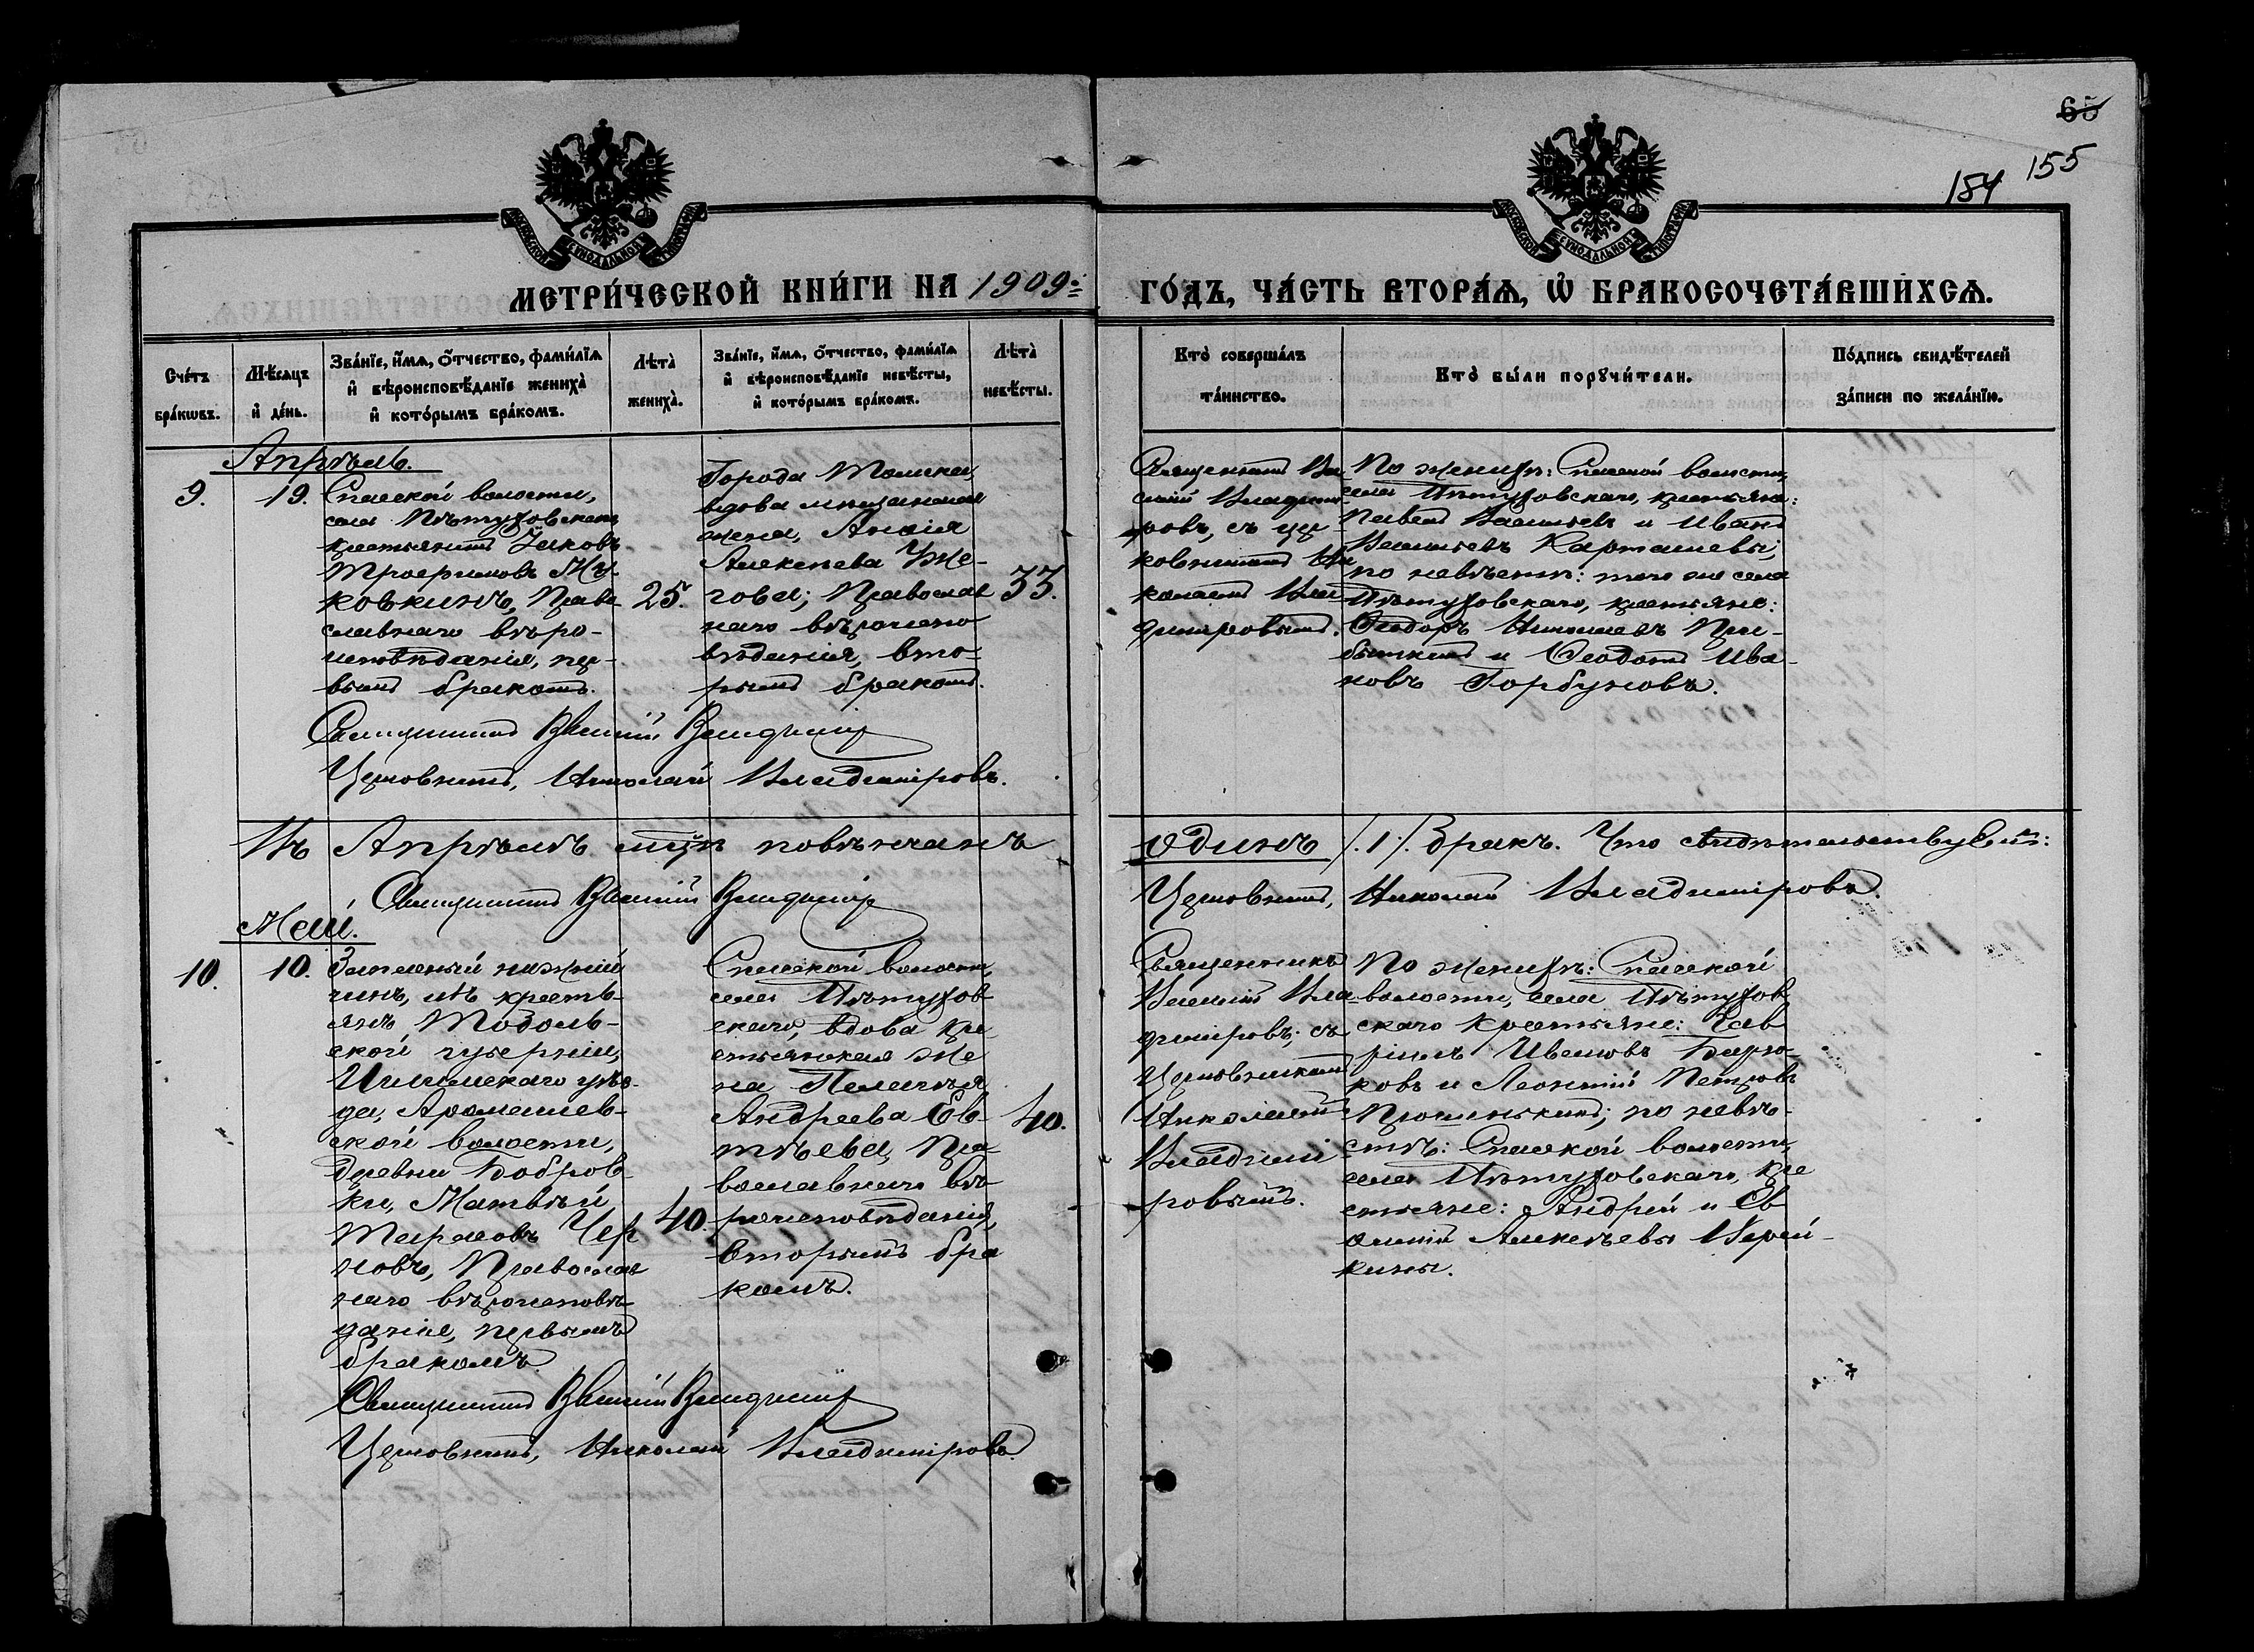 65
155
184
МЕТРИ́ЧЕСКОЙ КНИ́ГИ НА 1909:
ГО́ДЪ, ЧА́СТЬ ВТОРА́Ѧ, Ѽ БРАКОСОЧЕТА́ВШИХСѦ.
Сче́тъ
бра́кѡвъ.
Мѣ́сѧцъ
и҆ де́нь.
Зва́нїе, и҆́мѧ, ѻ҆́тчество, фами́лїѧ
и҆ вѣроисповѣ́данїе жениха̀
и҆ кото́рымъ бра́комъ.
Лѣта̀
жениха̀.
Зва́нїе, и҆́мѧ, ѻ҆́тчество, фами́лїѧ
и҆ вѣроисповѣ́данїе невѣ́сты,
и҆ кото́рымъ бра́комъ.
Лѣта̀
невѣ́сты.
Кто̀ соверша́лъ
та́инство.
Кто̀ бы́ли порꙋчи́тели.
По́дпись свидѣ́телей
за́писи по жела́нїю.
Апрѣль.
9.
19.
Спасской волости,
села Пѣтуховскаго
крестьянинъ Іаковъ
Трофимовъ
ковкинъ, Право
славнаго вѣро-
исповѣданія, пер-
вымъ бракомъ.
25.
Города Томска,
вдова мѣщанская
жена, Анисія
Алексѣева
гова; Православ
наго вѣроиспо
вѣданія, вто-
рымъ бракомъ.
33.
Священникъ Ва
силій Владимі
ровъ, съ цер
ковникомъ Ни
колаемъ Вла
диміровымъ.
По женихѣ: Спасской волости,
села Пѣтуховскаго, крестьяне:
Павелъ Васильевъ и Иванъ
Васильевъ Карташевы;
по невѣстѣ: того же села
Пѣтуховскаго, крестьяне:
Ѳеодоръ Николаевъ При-
быткинъ и Ѳеодотъ Ива-
новъ Горбуновъ.
Священникъ Василій Владимір
Церковникъ, Николай Владиміровъ.
Въ Апрѣлѣ мцѣ повѣнчанъ
одинъ /.1/. бракъ. Что свидѣтельствуемъ:
Священникъ Василій Владимір
Церковникъ, Николай Владиміровъ.
Май.
10.
10.
Запасный нижній
чинъ, изъ кресть-
янъ Тоболь-
ской губерніи,
Ишимскаго уѣз-
да, Аромашев-
ской волости,
деревни Бобров-
ки, Матвѣй
Тарасовъ Чер
новъ, Православ
наго вѣроисповѣ-
данія, первымъ
бракомъ.
40.
Спасской волости,
села Пѣтухов
скаго, вдова кре
стьянская же
на Пелагѣя
Андреева Ев-
тѣева, Пра-
вославнаго вѣ-
роисповѣданія,
вторымъ бра
комъ.
40.
Священникъ
Василій Вла
диміровъ, съ
Церковникомъ
Николаемъ
Владимі
ровымъ.
По женихѣ: Спасской
волости, села Пѣтухов
скаго крестьяне: Гав
ріилъ Ивановъ Бирю-
ковъ и Леонтій Петровъ
по невѣ-
стѣ: Спасской волости,
села Пѣтуховскаго, кре
стьяне: Андрей и Ев
Алексѣевы
кины.
Священникъ Василій Владимір
Церковникъ, Николай Владиміровъ.